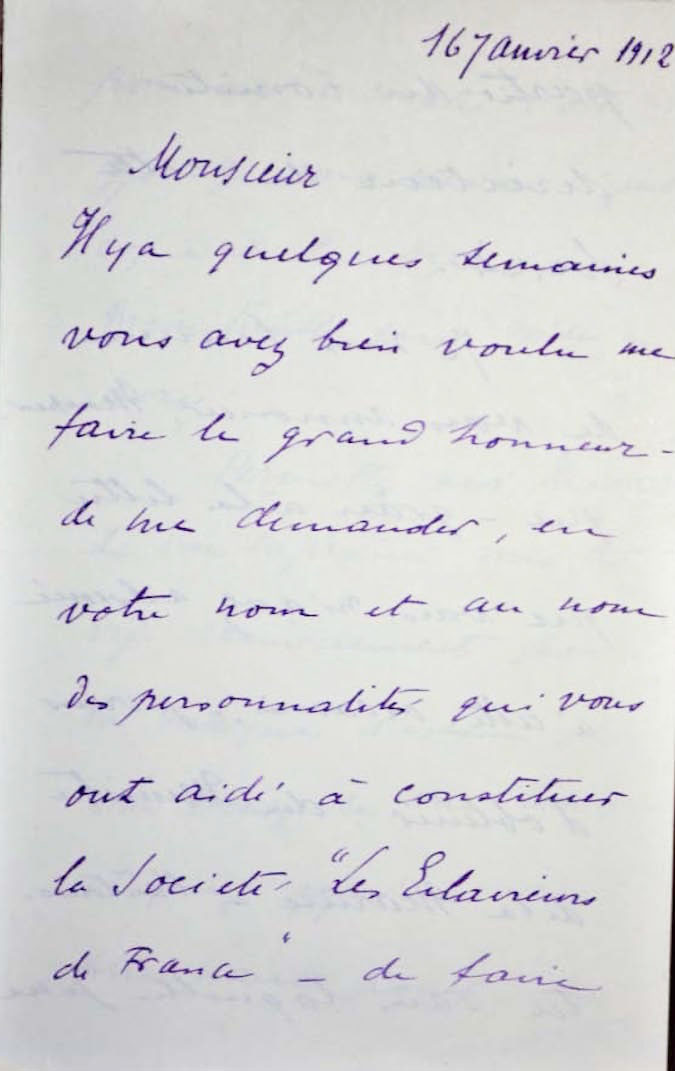 16 Janvier 1912
Monsieur
Il y a quelques semaines
vous avez bien voulu me
faire le grand honneur -
de me demander, en
votre nom et au nom
des personnalités qui vous
ont aidé à constituer
la Société "Les Eclaireurs
de France" - de faire